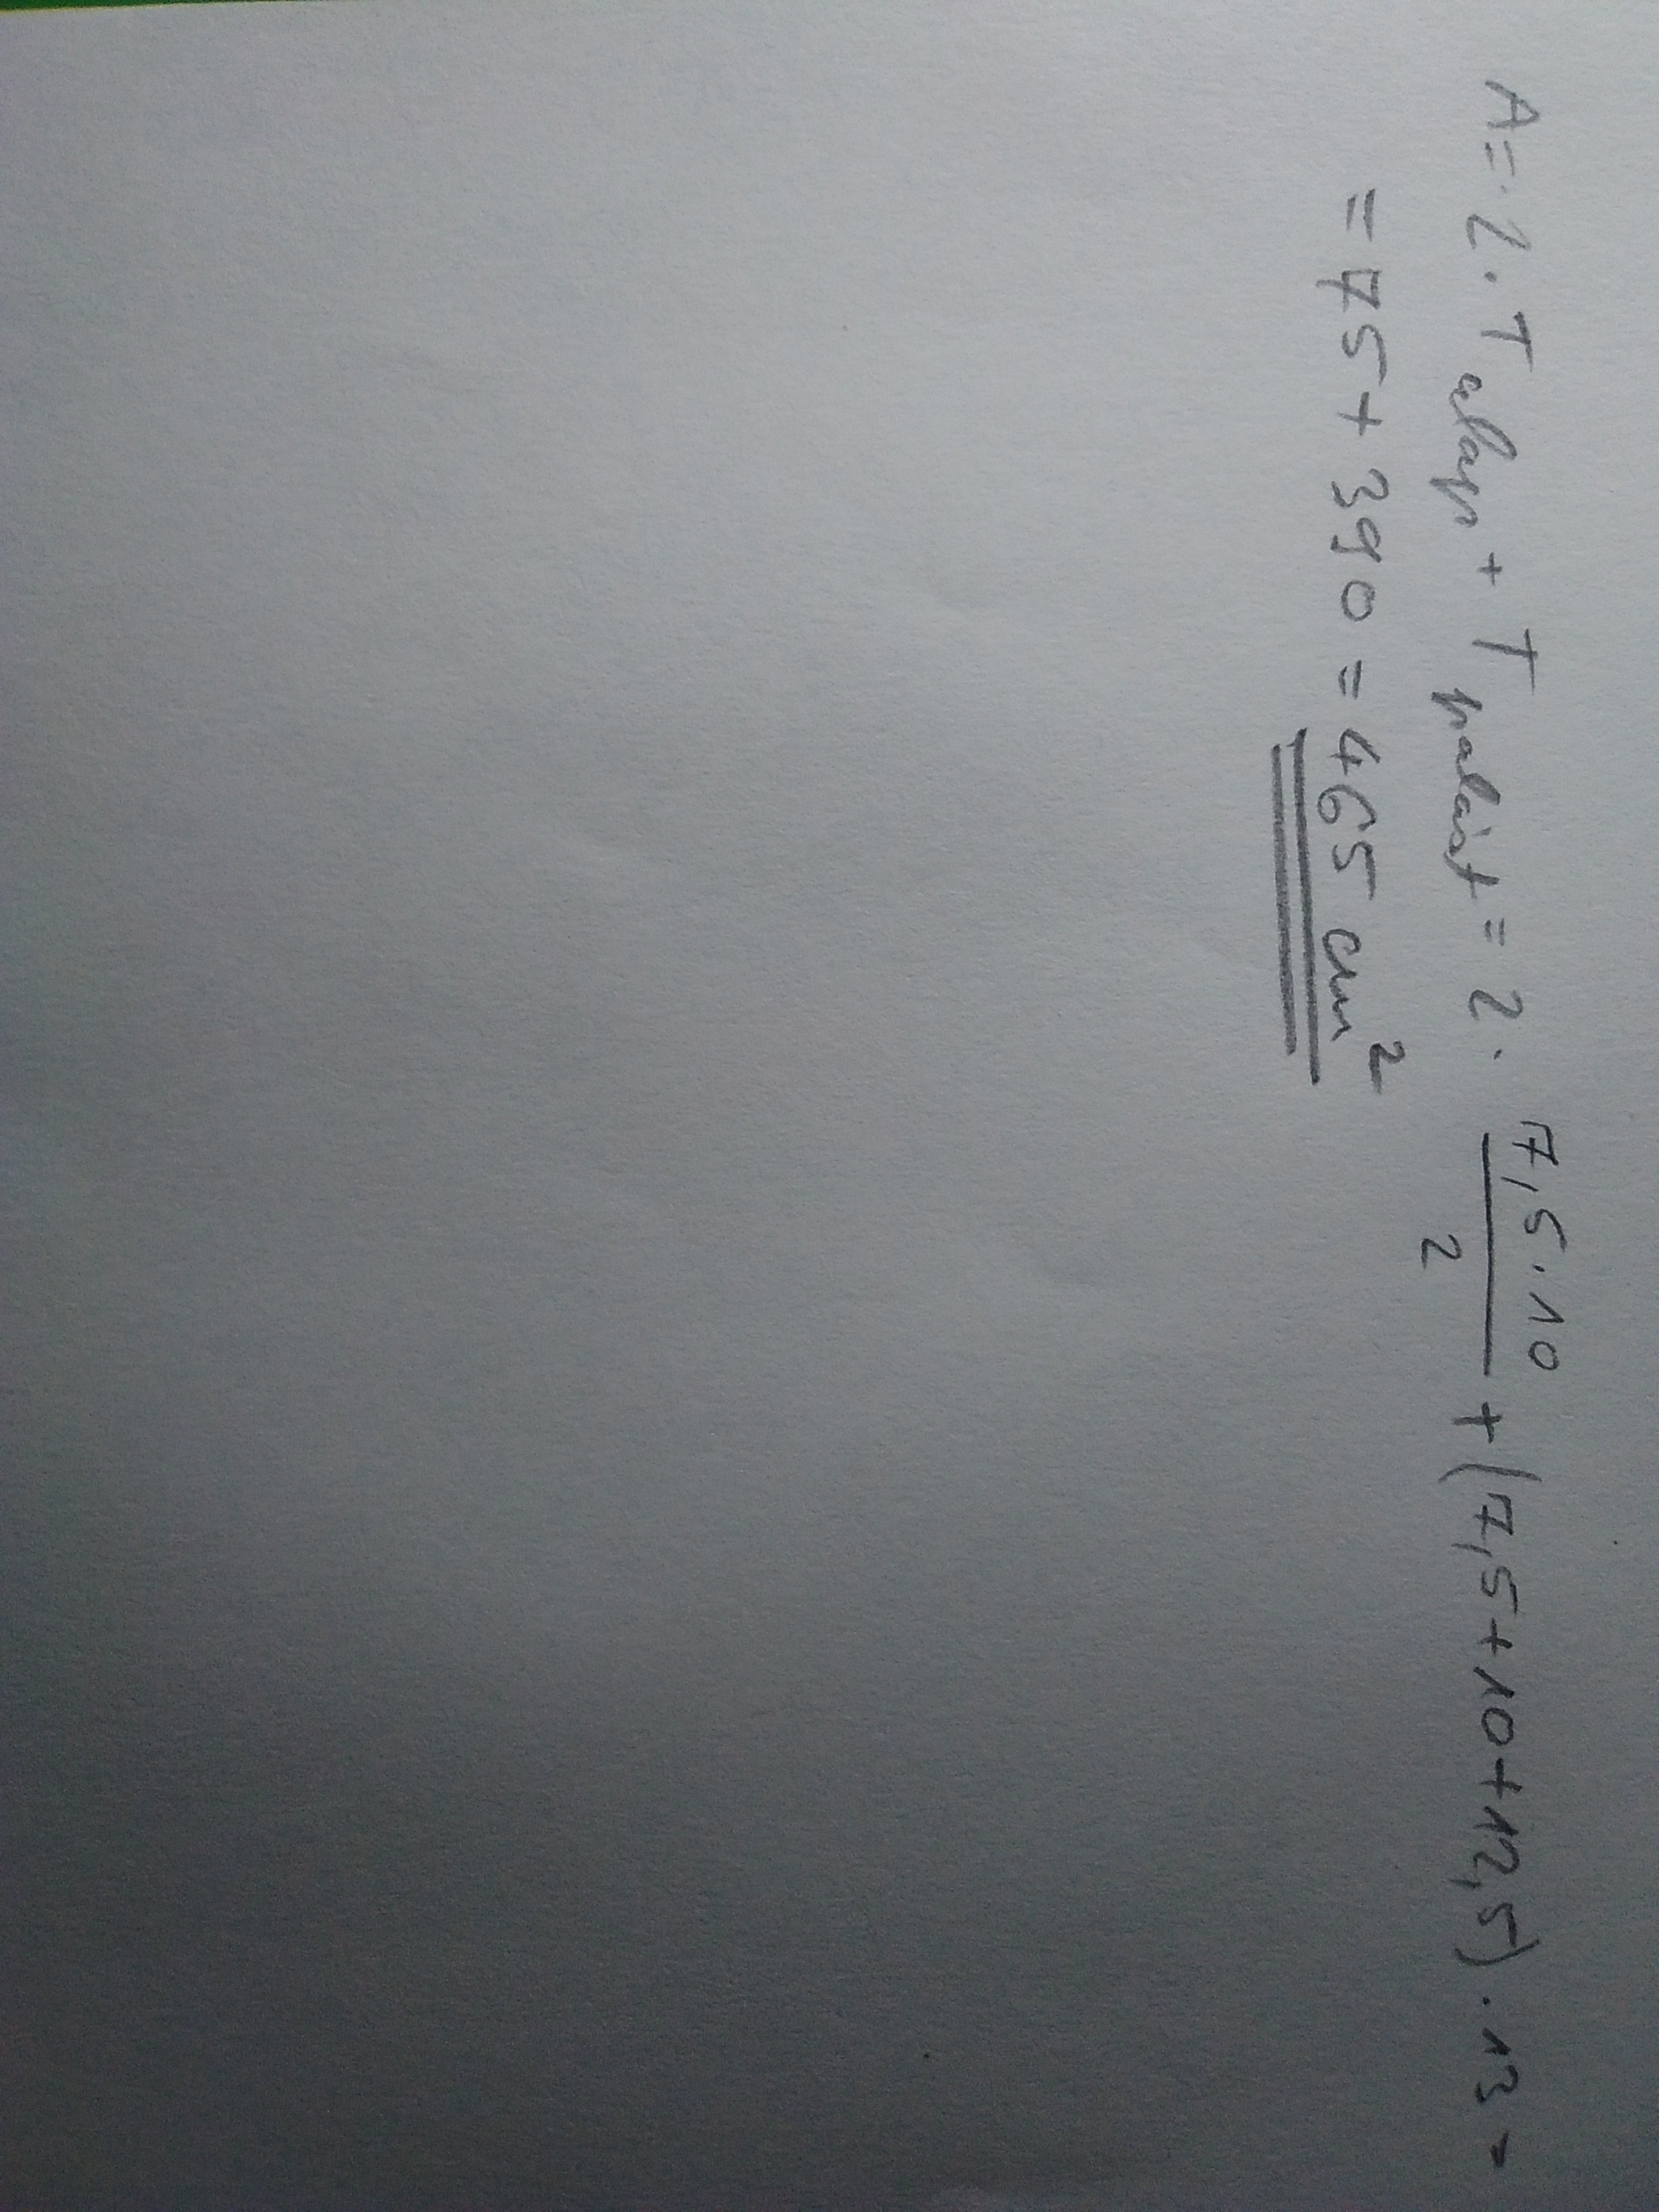 A = 2 · T alap + T palást = 2 · 7,5 · 10 / 2 + (7,5 + 10 + 12,5) · 13 =
= 75 + 390 = 465 cm²